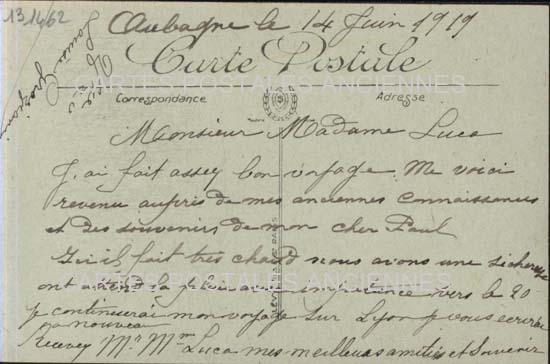 131462
Aubagne le 14 Juin 1919
Carte Postale
CARTES POSTALES ANCIENNES
Correspondance
Adresse
Monsieur Madame Luca
J,ai fait assez bon voyage. Me voici
revenu auprès de mes anciennes connaissances
et des souvenirs de mon cher Paul
Ici il fait très chaud nous avons une sécheresse
CARTES POSTALES ANCIENNES
ont attend la pluie avec impatience vers le 20
je continuerai mon voyage sur Lyon je vous ecrirai
a nouveau
Recevez Mr Mme Luca mes meilleurs amitiés et Souvenir
Louis